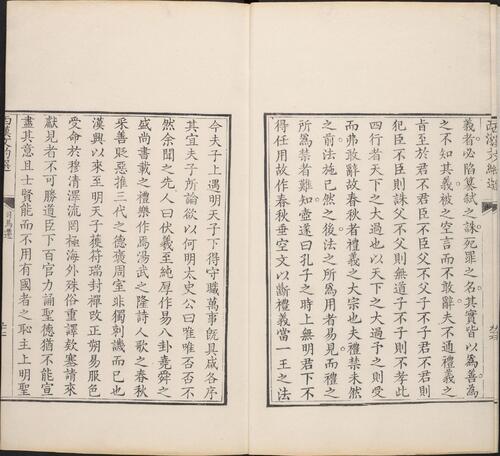 義者必陷篡弑之誅死罪之名其實皆以爲善爲
之不知其義被之空言而不敢辭夫不通禮義之
旨至於君不君臣不臣父不父子不子君不君則
犯臣不臣則誅父不父則無道子不子則不孝此
四行者天下之大過也以天下之大過予之則受
而弗敢辭故春秋者禮義之大宗也夫禮禁未然
之前法施已然之後法之所爲用者易見而禮之
所爲禁者難知壺遂曰孔子之時上無明君下不
得任用故作春秋垂空文以斷禮義當一王之法
今夫子上遇明天子下得守職萬事既具咸各序
其宜夫子所論欲以何明太史公曰唯唯否否不
然余聞之先人曰伏羲至純厚作易八卦堯舜之
盛尚書載之禮樂作焉湯武之隆詩人歌之春秋
采善貶惡推三代之德褒周室非獨刺譏而已也
漢興以來至明天子獲符瑞封禪改正朔易服色
受命於穆清澤流罔極海外殊俗重譯欵塞請來
獻見者不可勝道臣下百官力誦聖德猶不能宣
盡其意且士賢能而不用有國者之恥主上明聖
司馬遷